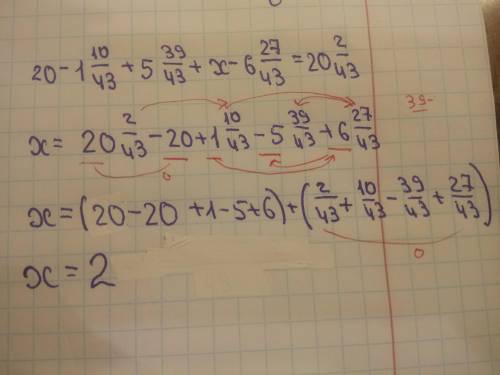 20 - 1 10/43 + 5 39/43 + x - 6 27/43 = 20 2/43
39-
x = 20 2/43 - 20 + 1 10/43 - 5 39/43 + 6 27/43
0
x = (20 - 20 + 1 - 5 + 6) + (2/43 + 10/43 - 39/43 + 27/43)
0
x = 2